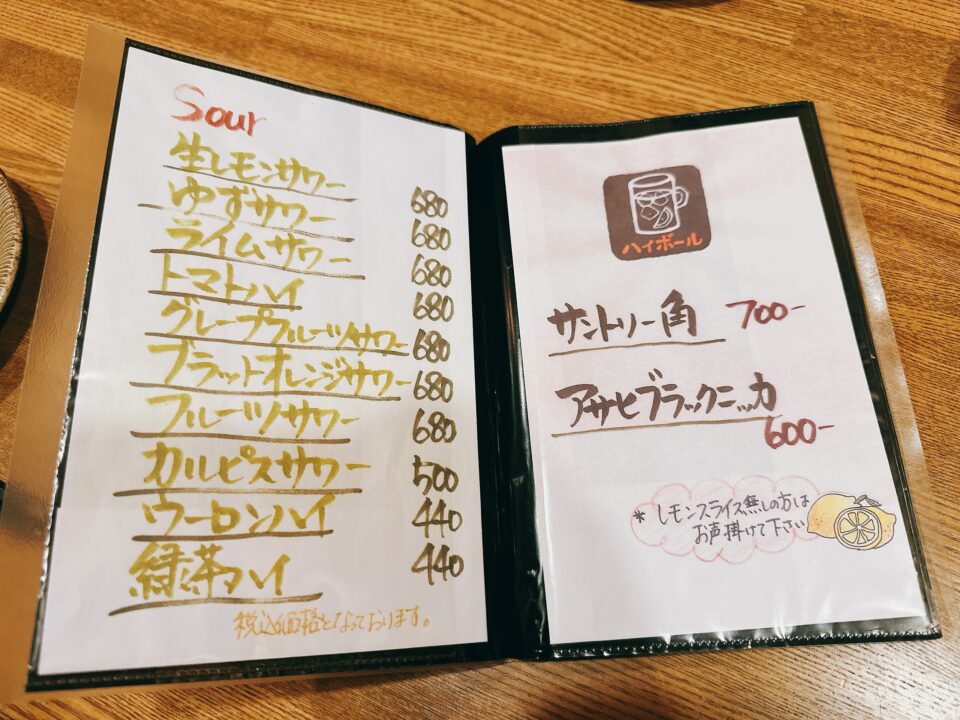 Sour
生レモンサワー 680
ゆずサワー 680
ライムサワー 680
トマトハイ 680
グレープフルーツサワー 680
ブラットオレンジサワー 680
フルーツサワー 680
カルピスサワー 500
ウーロンハイ 440
緑茶ハイ 440
税込価格となっております。
ハイボール
サントリー角 700-
アサヒブラックニッカ
600-
* レモンスライス無しの方は
お声掛けて下さい